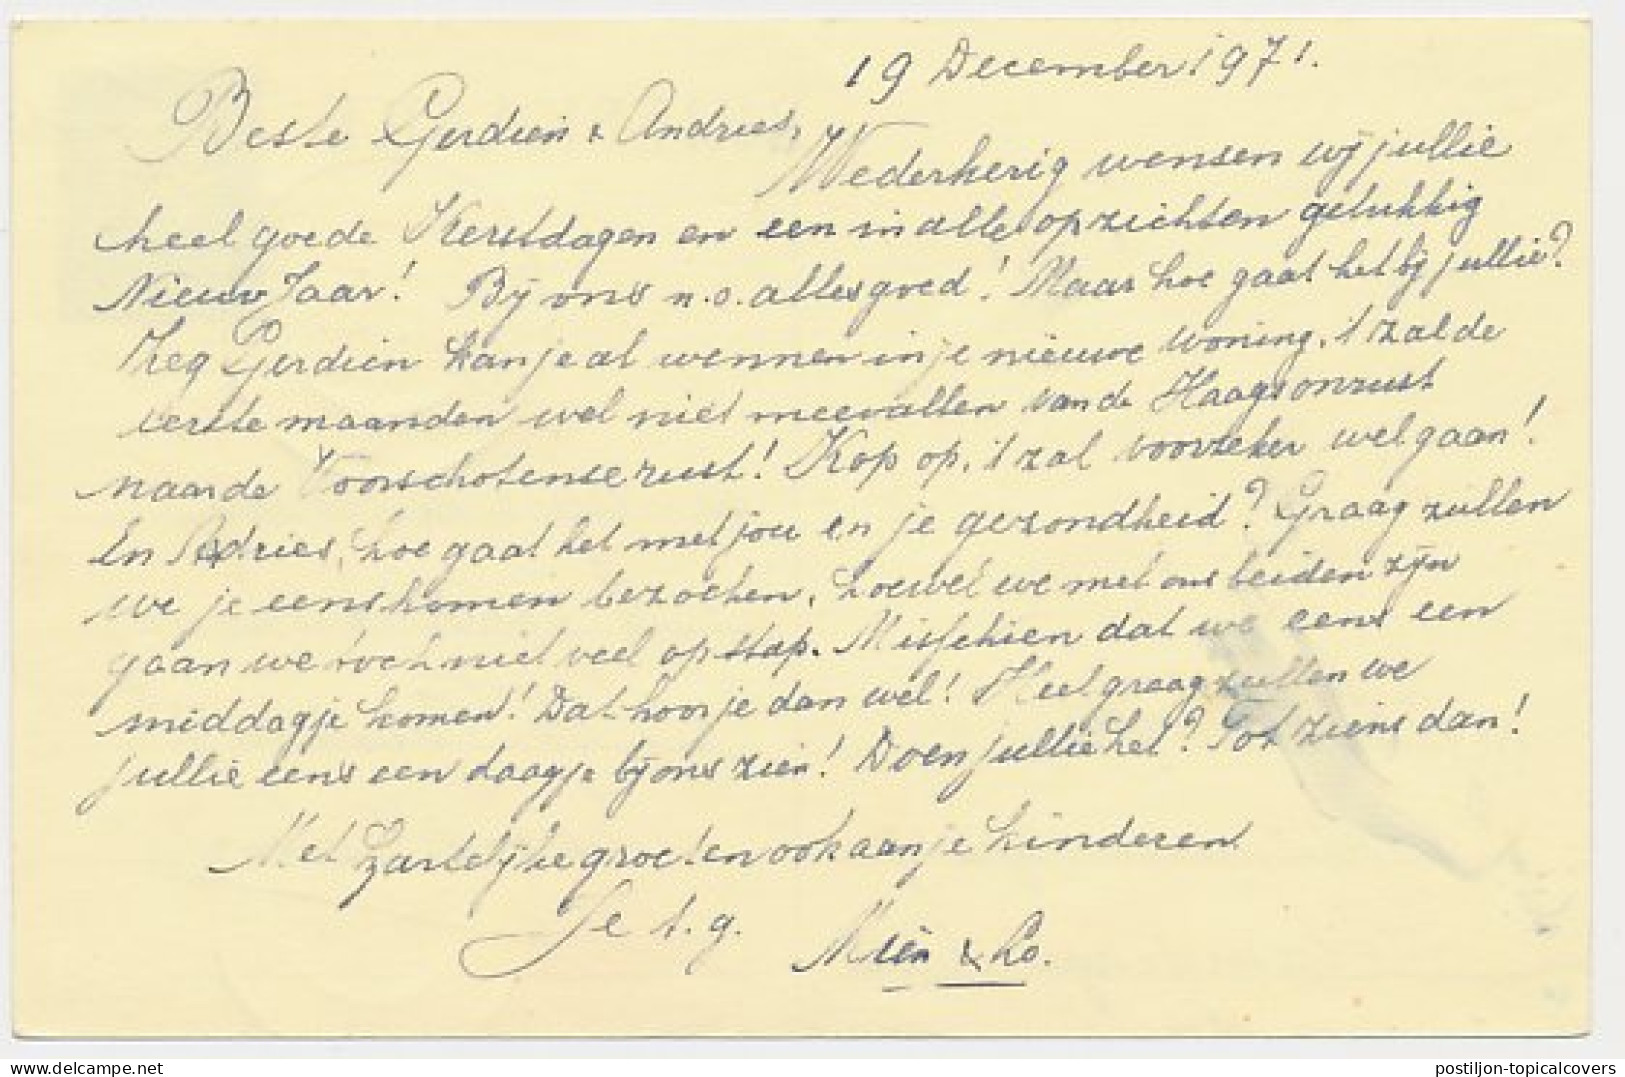 19 December 1971.
Beste Gerdien & Andries,
Wederkerig wensen wij jullie
heel goede Kerstdagen en een in alle opzichten gelukkig
Nieuw Jaar! Bij ons n.o. alles goed! Maar hoe gaat het bij jullie?
Zeg Gerdien kan je al wennen in je nieuwe woning, 't zal de
eerste maanden wel niet meevallen van de Haagsonrust
naar de Voorschotense rust! Kop op, 't zal voorzeker wel gaan!
En Andries, hoe gaat het met jou en je gezondheid? Graag zullen
we je eens komen bezoeken, hoewel we met ons beiden zijn
gaan we toch niet veel op stap. Misschien dat we eens een
middagje komen! Dat hoor je dan wel! Heel graag zullen we
jullie eens een daagje bij ons zien! Doen jullie het? Tot ziens dan!
Met hartelijke groeten ook aan je kinderen
Je t.g. Mien & Co.
postiljon-topicalcovers
delcampe.net